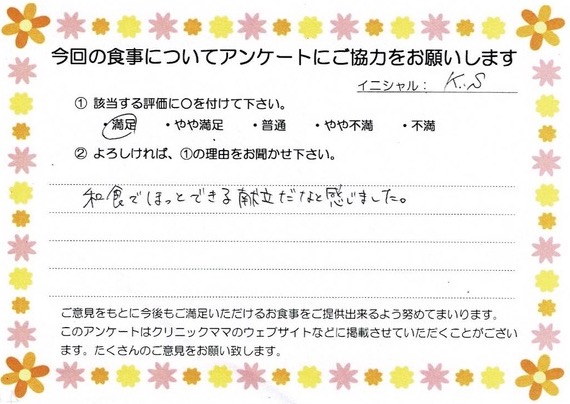 今回の食事についてアンケートにご協力をお願いします
イニシャル： K.S
① 該当する評価に〇を付けて下さい。
・満足 ・やや満足 ・普通 ・やや不満 ・不満
② よろしければ、①の理由をお聞かせ下さい。
和食でほっとできる献立だなと感じました。
ご意見をもとに今後もご満足いただけるお食事をご提供出来るよう努めてまいります。
このアンケートはクリニックママのウェブサイトなどに掲載させていただくことがござい
ます。たくさんのご意見をお願い致します。